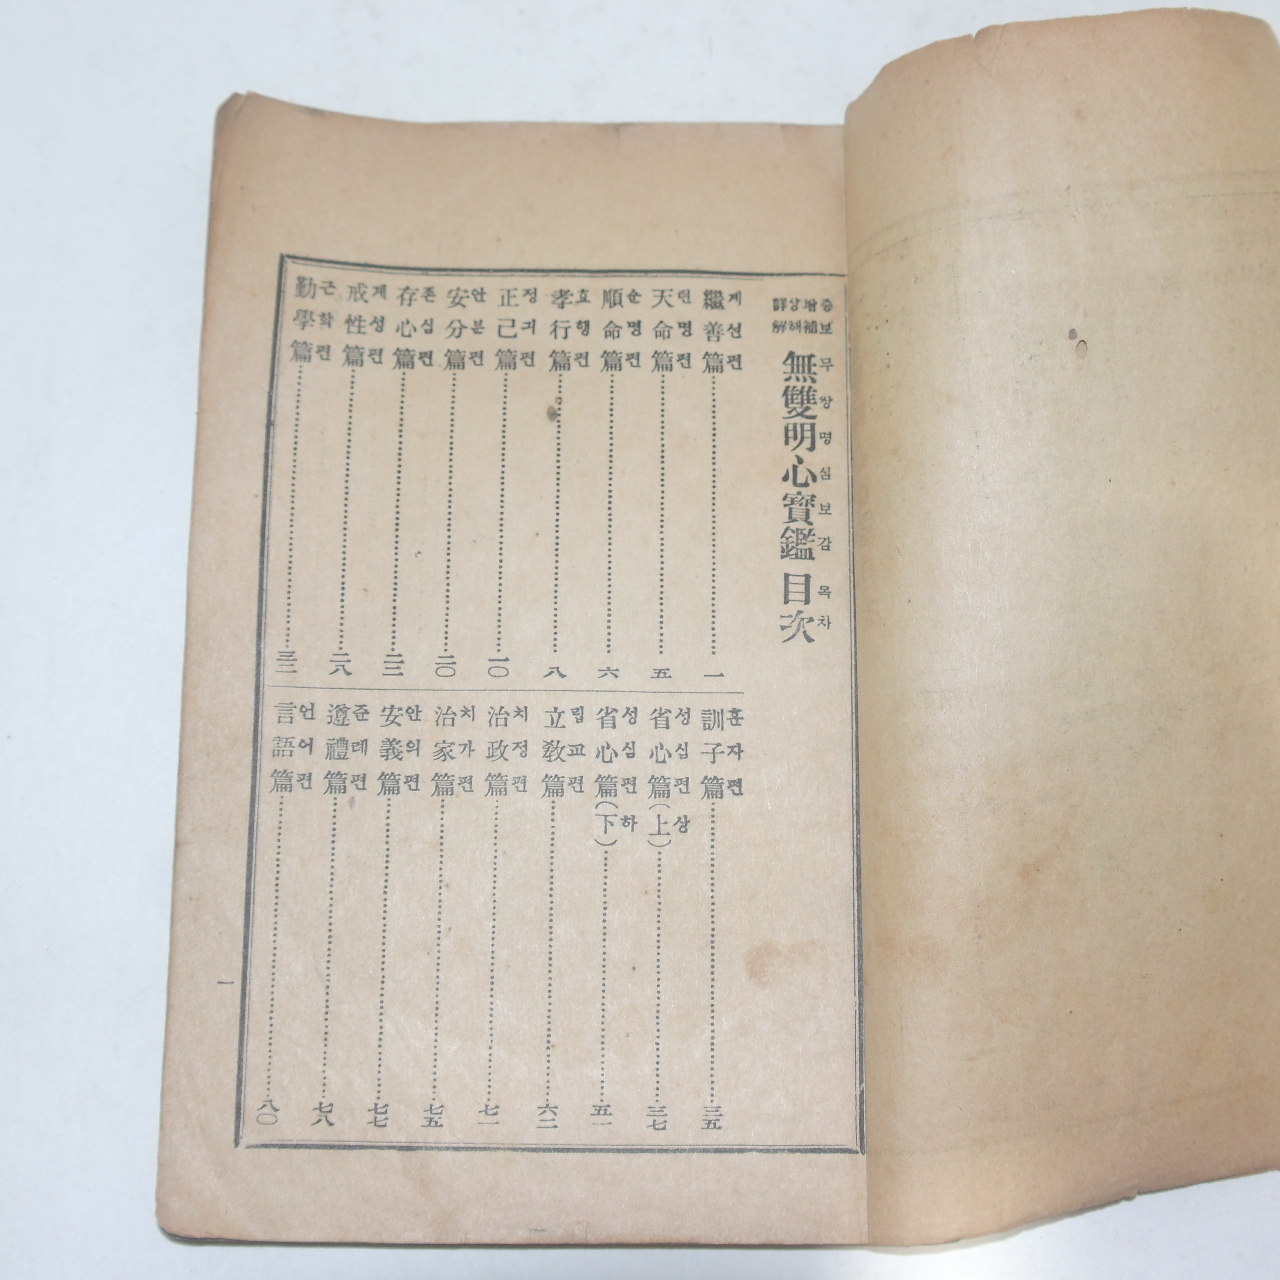 增補 증보
詳解 상해
無雙明心寶鑑 目次
무쌍명심보감 목차
繼善篇 게선편 一
天命篇 텬명편 五
順命篇 순명편 六
孝行篇 효행편 八
正己篇 정긔편 一〇
安分篇 안분편 二〇
存心篇 존심편 二二
戒性篇 게성편 二八
勤學篇 근학편 三二
訓子篇 훈자편 三五
省心篇(上) 성심편상 三七
省心篇(下) 성심편하 五一
立敎篇 립교편 六二
治政篇 치정편 七一
治家篇 치가편 七五
安義篇 안의편 七七
遵禮篇 준레편 七八
言語篇 언어편 八〇
一